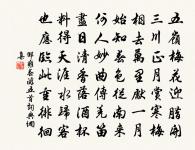 五嶺梅花迎臘開
三川正月賞寒梅
相去萬里先一月
始知春色從南來
何人妙曲傳羌笛
盡日清香落酒杯
料得天涯未歸客
也應臨此重徘徊
邵雍春游五首詞典網
集